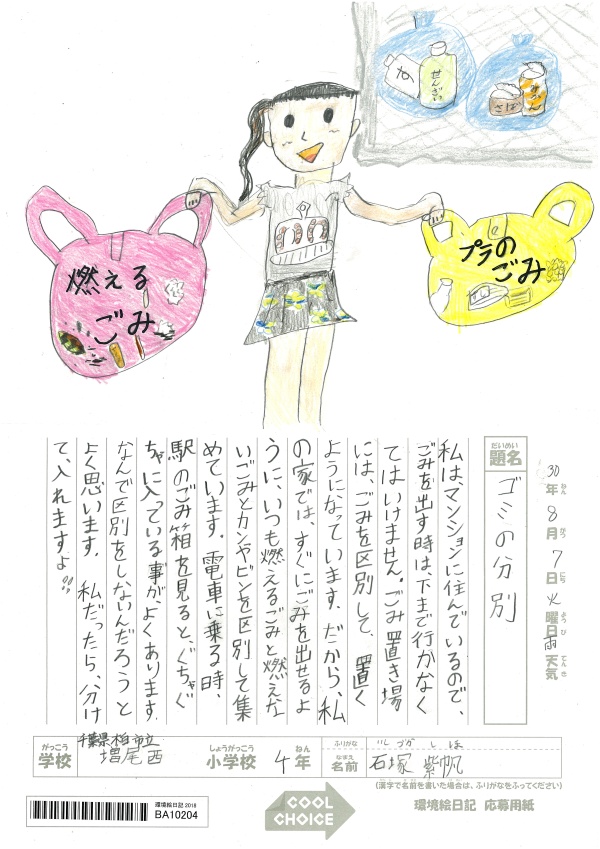 せんざい
さば
燃える
ごみ
プラの
ごみ
30年 8月 7日 火曜日 天気 雨
ねん がつ にち ようび てんき
だいめい
題名
ゴミの分別
私は、マンションに住んでいるので、
ごみを出す時は、下まで行かなく
てはいけません。ごみ置き場
には、ごみを区別して、置く
ようになっています。だから、私
の家では、すぐにごみを出せるよ
うに、いつも燃えるごみと燃えな
いごみとカンやビンを区別して集
めています。電車に乗る時、
駅のごみ箱を見ると、ぐちゃぐ
ちゃに入っている事が、よくあります。
なんで区別をしないんだろうと
よく思います。私だったら、分け
て、入れますよ!!
がっこう
学校
千葉県柏市立
増尾西
しょうがっこう
小学校
4年
ねん
ふりがな
いしづか しほ
なまえ
名前
石塚 紫帆
(漢字で名前を書いた場合は、ふりがなをふってください)
環境絵日記2018
BA10204
COOL
CHOICE
環境絵日記 応募用紙